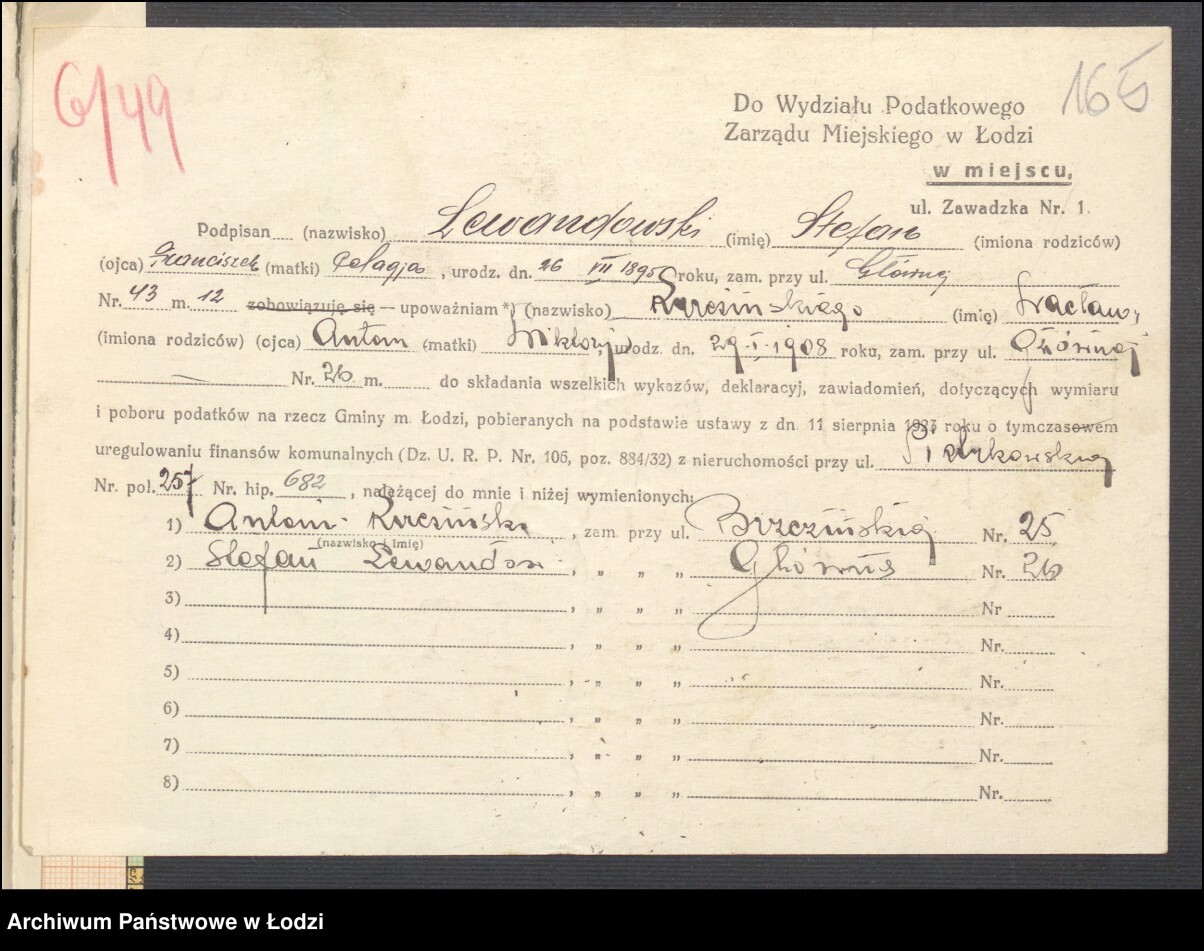 6/49
165
Do Wydziału Podatkowego
Zarządu Miejskiego w Łodzi
w miejscu,
ul. Zawadzka Nr. 1.
Podpisan (nazwisko) Lewandowski (imię) Stefan (imiona rodziców)
(ojca) Franciszek (matki) Pelagja, urodz. dn. 26 VII 1895 roku, zam. przy ul. Głównej
Nr. 43 m. 12 zobowiązuję się — upoważniam *) (nazwisko) Karcsińskiego (imię) Wacława,
(imiona rodziców) (ojca) Antoni (matki) Wiktorja, urodz. dn. 29.I.1908 roku, zam. przy ul. Głównej
Nr. 26 m. do składania wszelkich wykazów, deklaracyj, zawiadomień, dotyczących wymiaru
i poboru podatków na rzecz Gminy m. Łodzi, pobieranych na podstawie ustawy z dn. 11 sierpnia 1923 roku o tymczasowem
uregulowaniu finansów komunalnych (Dz. U. R. P. Nr. 106, poz. 884/32) z nieruchomości przy ul. Piotrkowskiej
Nr. pol. 257 Nr. hip. 682, należącej do mnie i niżej wymienionych:
1) Antoni , zam. przy ul. Brzezińskiej Nr. 25
(nazwisko i imię)
2) Stefan , „ „ „ Główna Nr. 26
3) , „ „ „ Nr
4) , „ „ „ Nr.
5) , „ „ „ Nr.
6) , „ „ „ Nr.
7) , „ „ „ Nr.
8) , „ „ „ Nr.
Archiwum Państwowe w Łodzi